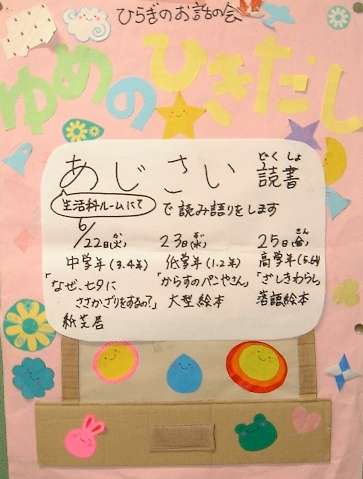 ひらぎのお話の会
ゆめのひきだし
どくしょ
あじさい 読書
生活科ルームにて で読み語りをします
6/
22日(火) 23日(水) 25日(金)
中学年(3.4年) 低学年(1.2年) 高学年(5.6年)
「なぜ、七夕に 「からすのパンやさん」 「ざしきわらし」
ささかざりをするの?」 大型絵本 落語絵本
紙芝居